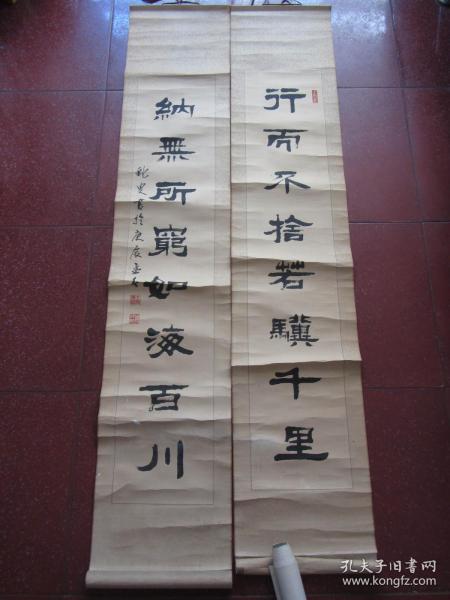 行而不捨若驥千里
納無所窮如海百川
孔夫子旧书网
www.kongfz.com